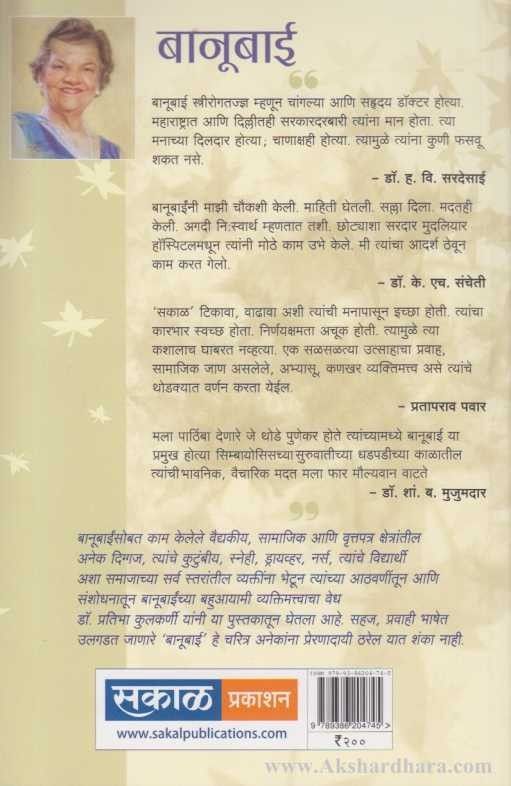 बानूबाई
बानूबाई स्त्रीरोगतज्ज्ञ म्हणून चांगल्या आणि सहृदय डॉक्टर होत्या.
महाराष्ट्रात आणि दिल्लीतही सरकारदरबारी त्यांना मान होता. त्या
मनाच्या दिलदार होत्या; चाणाक्षही होत्या. त्यामुळे त्यांना कुणी फसवू
शकत नसे.
– डॉ. ह. वि. सरदेसाई
बानूबाईंनी माझी चौकशी केली. माहिती घेतली. सल्ला दिला. मदतही
केली. अगदी नि:स्वार्थ म्हणतात तशी. छोट्याशा सरदार मुदलियार
हॉस्पिटलमधून त्यांनी मोठे काम उभे केले. मी त्यांचा आदर्श ठेवून
काम करत गेलो.
– डॉ. के. एच. संचेती
'सकाळ' टिकावा, वाढावा अशी त्यांची मनापासून इच्छा होती. त्यांचा
कारभार स्वच्छ होता. निर्णयक्षमता अचूक होती. त्यामुळे त्या
कशालाच घाबरत नव्हत्या. एक सळसळत्या उत्साहाचा प्रवाह,
सामाजिक जाण असलेले, अभ्यासू, कणखर व्यक्तिमत्त्व असे त्यांचे
थोडक्यात वर्णन करता येईल.
– प्रतापराव पवार
मला पाठिंबा देणारे जे थोडे पुणेकर होते त्यांच्यामध्ये बानूबाई या
प्रमुख होत्या सिम्बायोसिसच्या सुरुवातीच्या धडपडीच्या काळातील
त्यांची भावनिक, वैचारिक मदत मला फार मौल्यवान वाटते
– डॉ. शां. ब. मुजुमदार
बानूबाईंसोबत काम केलेले वैद्यकीय, सामाजिक आणि वृत्तपत्र क्षेत्रांतील
अनेक दिग्गज, त्यांचे कुटुंबीय, स्नेही, ड्रायव्हर, नर्स, त्यांचे विद्यार्थी
अशा समाजाच्या सर्व स्तरांतील व्यक्तींना भेटून त्यांच्या आठवणींतून आणि
संशोधनातून बानूबाईंच्या बहुआयामी व्यक्तिमत्त्वाचा वेध
डॉ. प्रतिभा कुलकर्णी यांनी या पुस्तकातून घेतला आहे. सहज, प्रवाही भाषेत
उलगडत जाणारे 'बानूबाई' हे चरित्र अनेकांना प्रेरणादायी ठरेल यात शंका नाही.
सकाळ प्रकाशन
www.sakalpublications.com
ISBN 978-93-86204-74-5
9 789386 204745 >
₹२००
www.Akshardhara.com